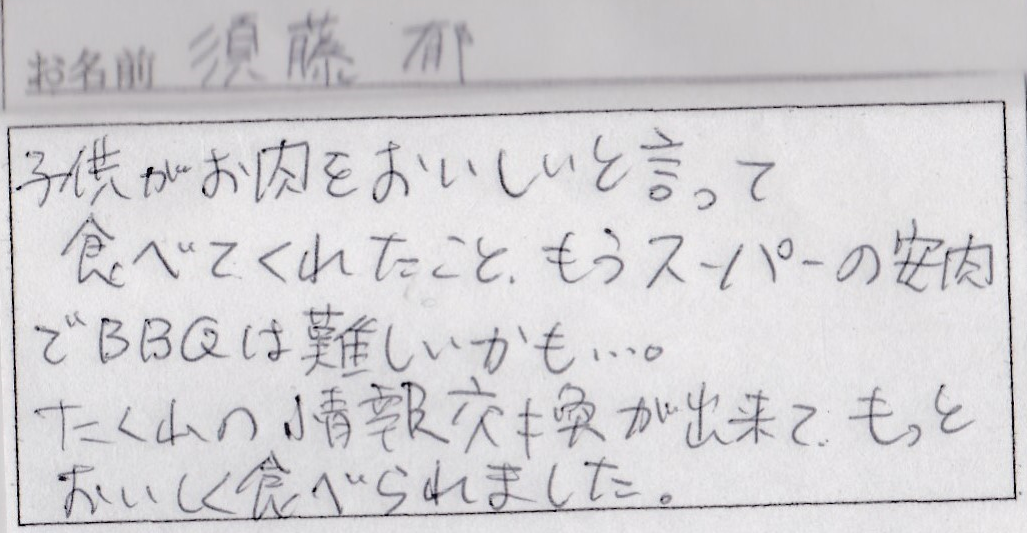 お名前 須藤 郁
子供がお肉をおいしいと言って
食べてくれたこと、もうスーパーの安肉
でBBQは難しいかも…。
たくさんの情報交換が出来て、もっと
おいしく食べられました。